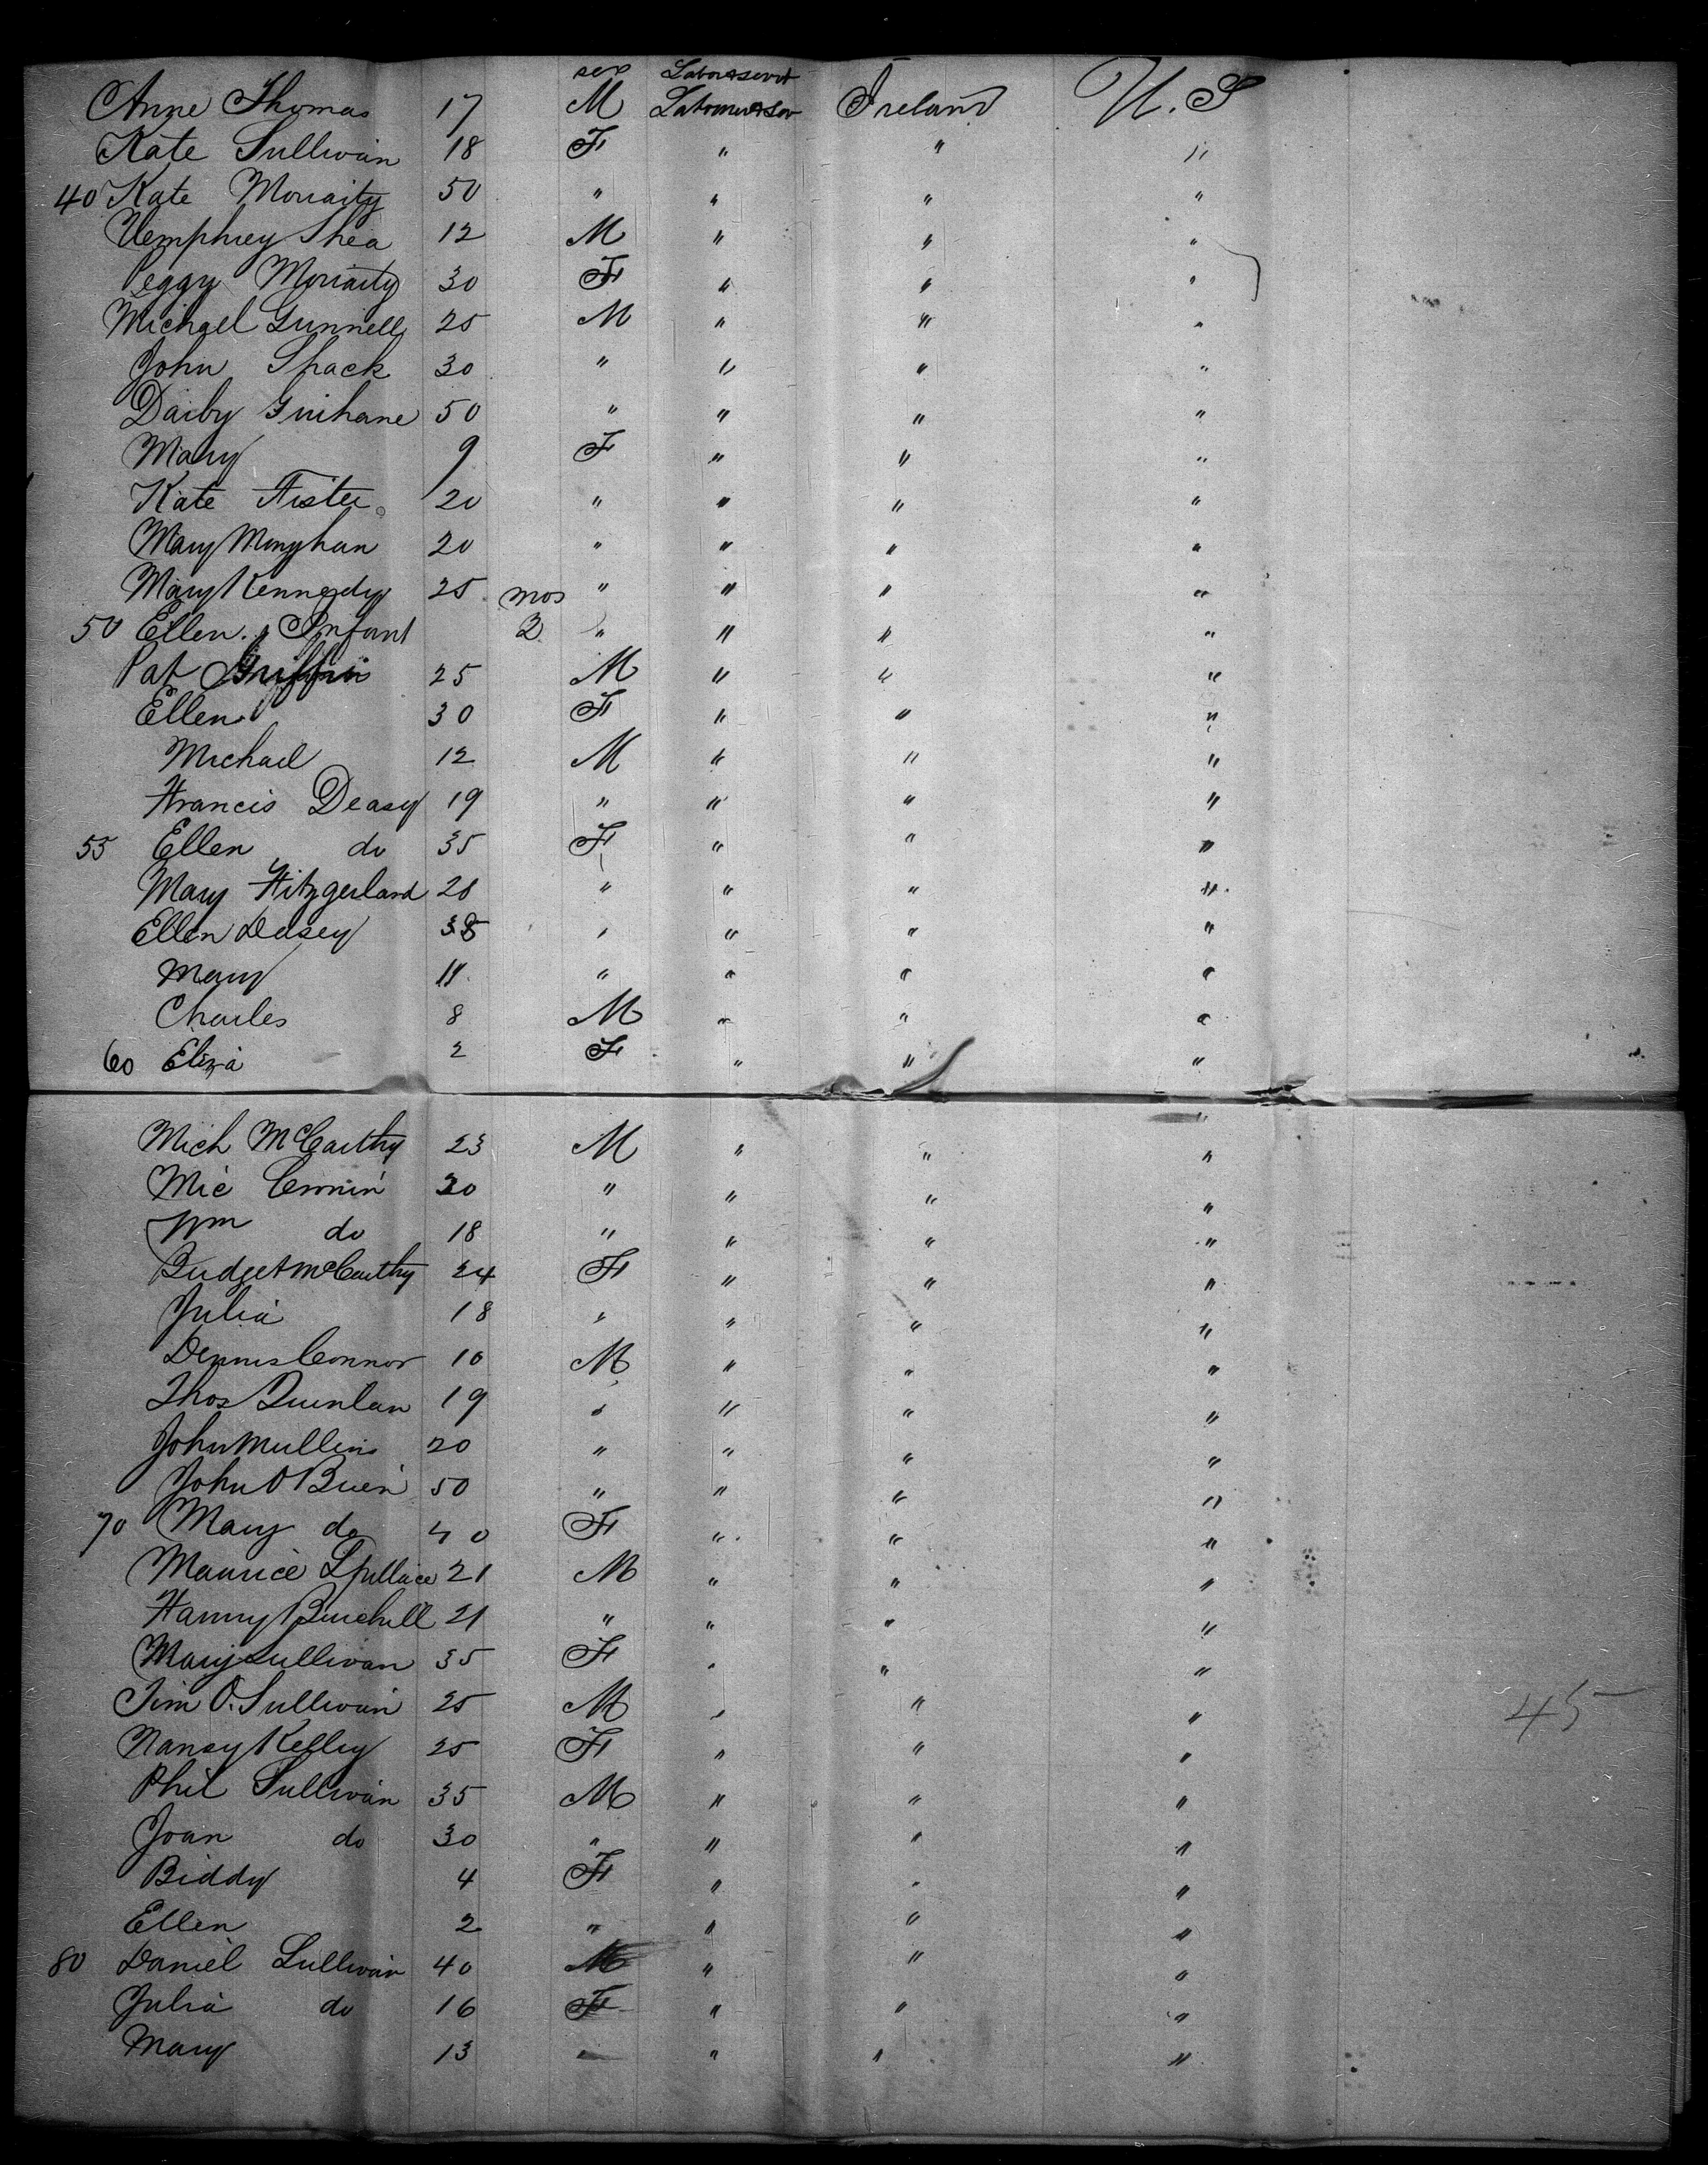 sex Labor & servt
Anne Thomas 17 M Laborer & Ser Ireland U. S
Kate Sullivan 18 F " " "
40 Kate Moriaity 50 " " " "
Hemphrey Shea 12 M " " "
Peggy Moriaity 30 F " " "
Michael Gunnell 25 M " " "
John Shack 30 " " " "
Darby Guihane 50 " " " "
Mary 9 F " " "
Kate 20 " " " "
Mary Monyhan 20 " " " "
Mary Kennedy 25 mos " " " "
50 Ellen. Infant 2 " " " "
Pat Griffin 25 M " " "
Ellen 30 F " " "
Michael 12 M " " "
Francis Deasy 19 " " " "
55 Ellen do 35 F " " "
Mary Fitzgerland 28 " " " "
Ellen Deasey 38 " " " "
Mary 11 " " " "
Charles 8 M " " "
60 Eliza 2 F " " "
"
Mich McCarthy 23 M " " "
Mic Cronin 20 " " " "
Wm do 18 " " " "
Bridget McCarthy 24 F " " "
Julia 18 " " " "
Dennis Connor 10 M " " "
Thos Quinlan 19 " " " "
John Mullins 20 " " " "
John O Brien 50 " " " "
70 Mary do 40 F " " "
Maurice Spillace 21 M " " "
Hanny Burchill 21 " " " "
Mary Sullivan 35 F " " "
Tim O. Sullivan 25 M " " "
45
Nancy Kelley 25 F " " "
Phil Sullivan 35 M " " "
Joan do 30 " " " "
Biddy 4 F " " "
Ellen 2 " " " "
80 Daniel Sullivan 40 M " " "
Julia do 16 F " " "
Mary 13 — " " "